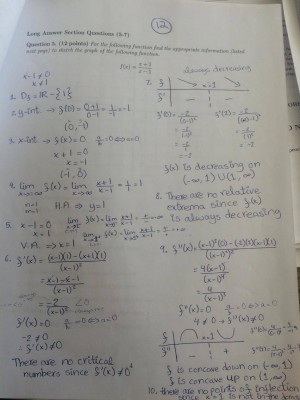 12
Long Answer Section Questions (5-7)
Question 5. (12 points) For the following function find the appropriate information (listed
next page) to sketch the graph of the function.
f(x) = x+1/x-1
x-1≠0
x≠1
1. Df = IR - {1}
2. y-int. → f(0) = 0+1/0-1 = 1/-1 = -1
(0,-1)
3. x-int → f(x) = 0 a/b=0⇔a=0
x+1=0
x=-1
(-1,0)
4. lim f(x) = lim x+1/x-1 = 1/1 = 1
n=1
m=1
H.A. ⇒ y=1
5. x-1=0
x=1
V.A. ⇒ x=1
6. f'(x) = (x-1)(1)-(x+1)(1)
(x-1)²
= x-1-x-1
(x-1)²
= -2/(x-1)² <0
f'(x)=0 a/b=0⇔a=0
-2≠0
∴ f'(x)≠0
There are no critical
numbers since f'(x)≠0
7. always decreasing
f
x=1
f'
f'(0) = -2/(0-1)²
= -2
f(x) is decreasing on
(-∞,1) U (1,∞)
8. There are no relative
extrema since f(x)
is always decreasing
9.
= 4(x-1)
(x-1)⁴
= 4
f''(x)=0 a/b=0⇔a=0
4≠0 ∴ f''(x)≠0
f x=1
f''
f is concave down on (-∞,1)
f is concave up on (1,∞)
10. there are no points of inflection
since x=1 is not in the